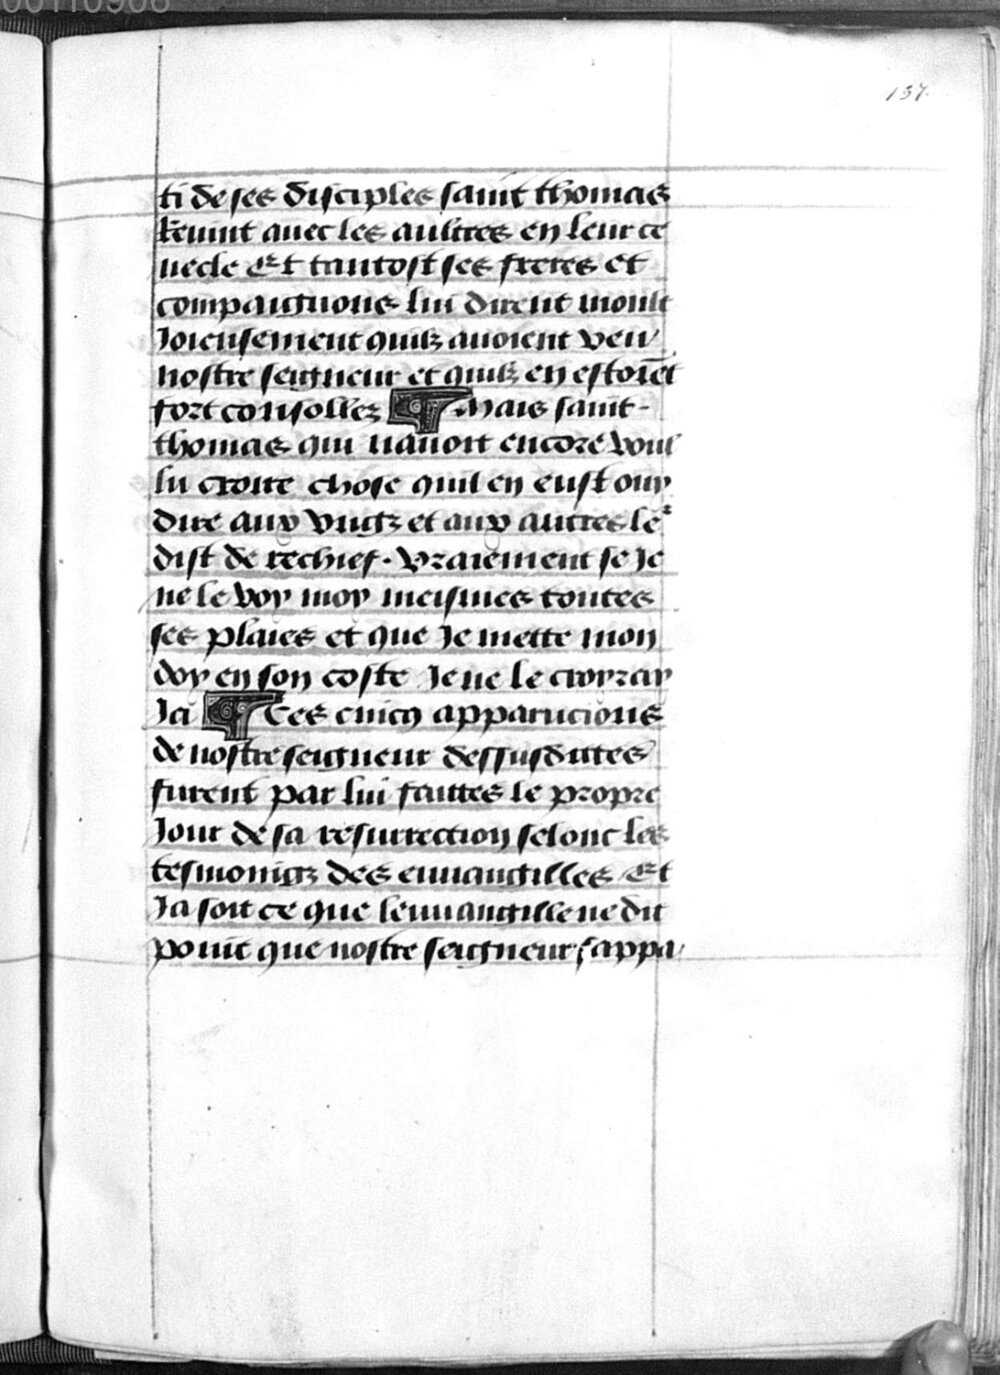 137.
ti de ses disciples saint thomas
Reuint auec les aultres en leur ce
nacle Et tantost ses freres et
compaignons lui dirent moult
Joieusement quilz auoient veu
nostre seigneur et quilz en estoiẽt
fort consollez ¶ Mais saint-
thomas qui nauoit encore vou
lu croire chose quil en eust ouy
dire aux vngz et aux autres le^r
dist de rechief. vraiement se Je
ne le voy moy meismes toutes
ses plaies et que Je mette mon
doy en son coste Je ne le croyray
Ja ¶ Ces cincq apparucions
de nostre seigneur dessusdittes
furent par lui faittes le propre
Jour de sa resurrection selonc les
tesmonigz des euuangilles Et
Ja soit ce que leuuangille ne dit
point que nostre seigneur sappa